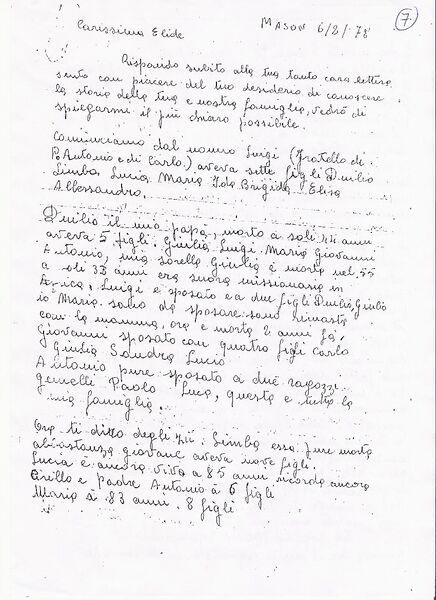 7
MASON 6/2/78
Carissima Elide
Rispondo subito alla tua tanto cara lettera
sento con piacere del tuo desiderio di conoscere
la storia della tua e nostra famiglia, vedrò di
spiegarmi il più chiaro possibile.
Cominciamo dal nonno Luigi (fratello di
P. Antonio e di Carlo) aveva sette figli Duilio
Limba Lucia Maria Ida Brigida Elisa
Alessandro.
Duilio il mio papà, morto a soli 44 anni
aveva 5 figli, Giulia Luigi Maria Giovanni
Antonio, mia sorella Giulia è morta nel 55
a soli 33 anni era suora missionaria in
Africa, Luigi è sposato e a due figli Duilio, Giulio
io Maria sono da sposare sono rimasta
con la mamma, ora è morta 2 anni fà,
Giovanni sposato con quattro figli Carlo
Giulia Sandra Lucio
Antonio pure sposato à due ragazzi
gemelli Paolo Luca, questa è tutta la
mia famiglia.
Ora ti ditto degli zii. Limba essa pure morta
abbastanza giovane aveva nove figli.
Lucia è ancora viva a 85 anni ricorda ancora
Cirillo e padre Antonio à 6 figli
Maria à 83 anni. 8 figli